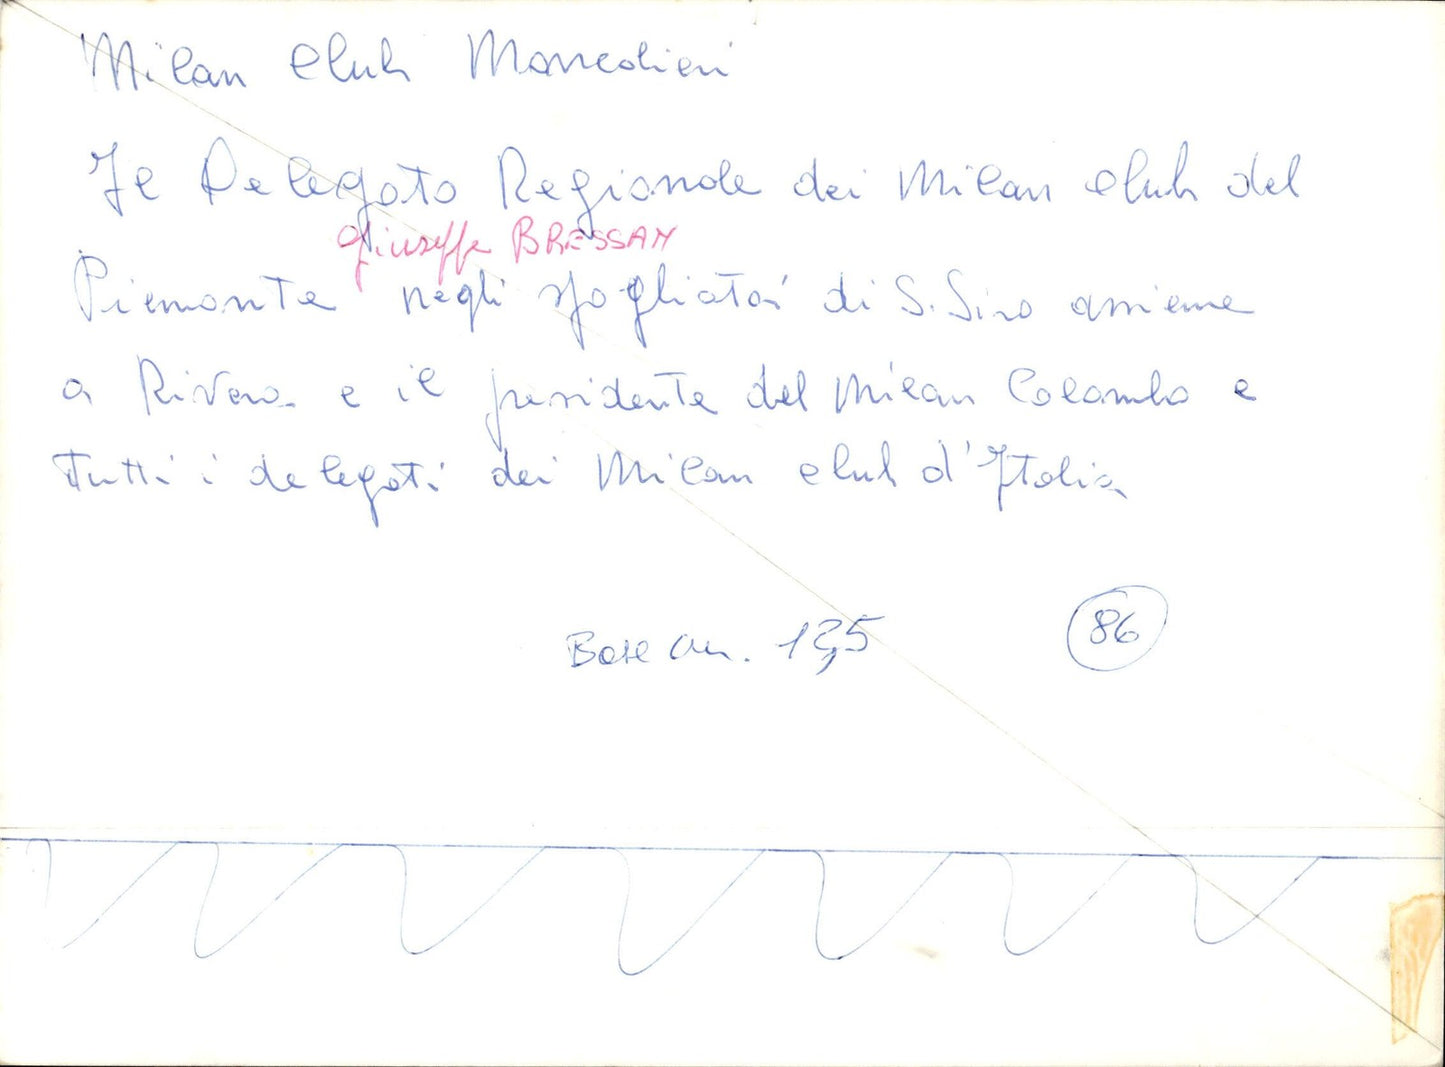 Milan Club Moncalieri
Il Delegato Regionale dei Milan Club del
Giuseppe BRESSAN
Piemonte negli spogliatoi di S. Siro assieme
a Rivera e il presidente del Milan Colombo e
Tutti i delegati dei Milan club d'Italia
Base cm. 12,5
86